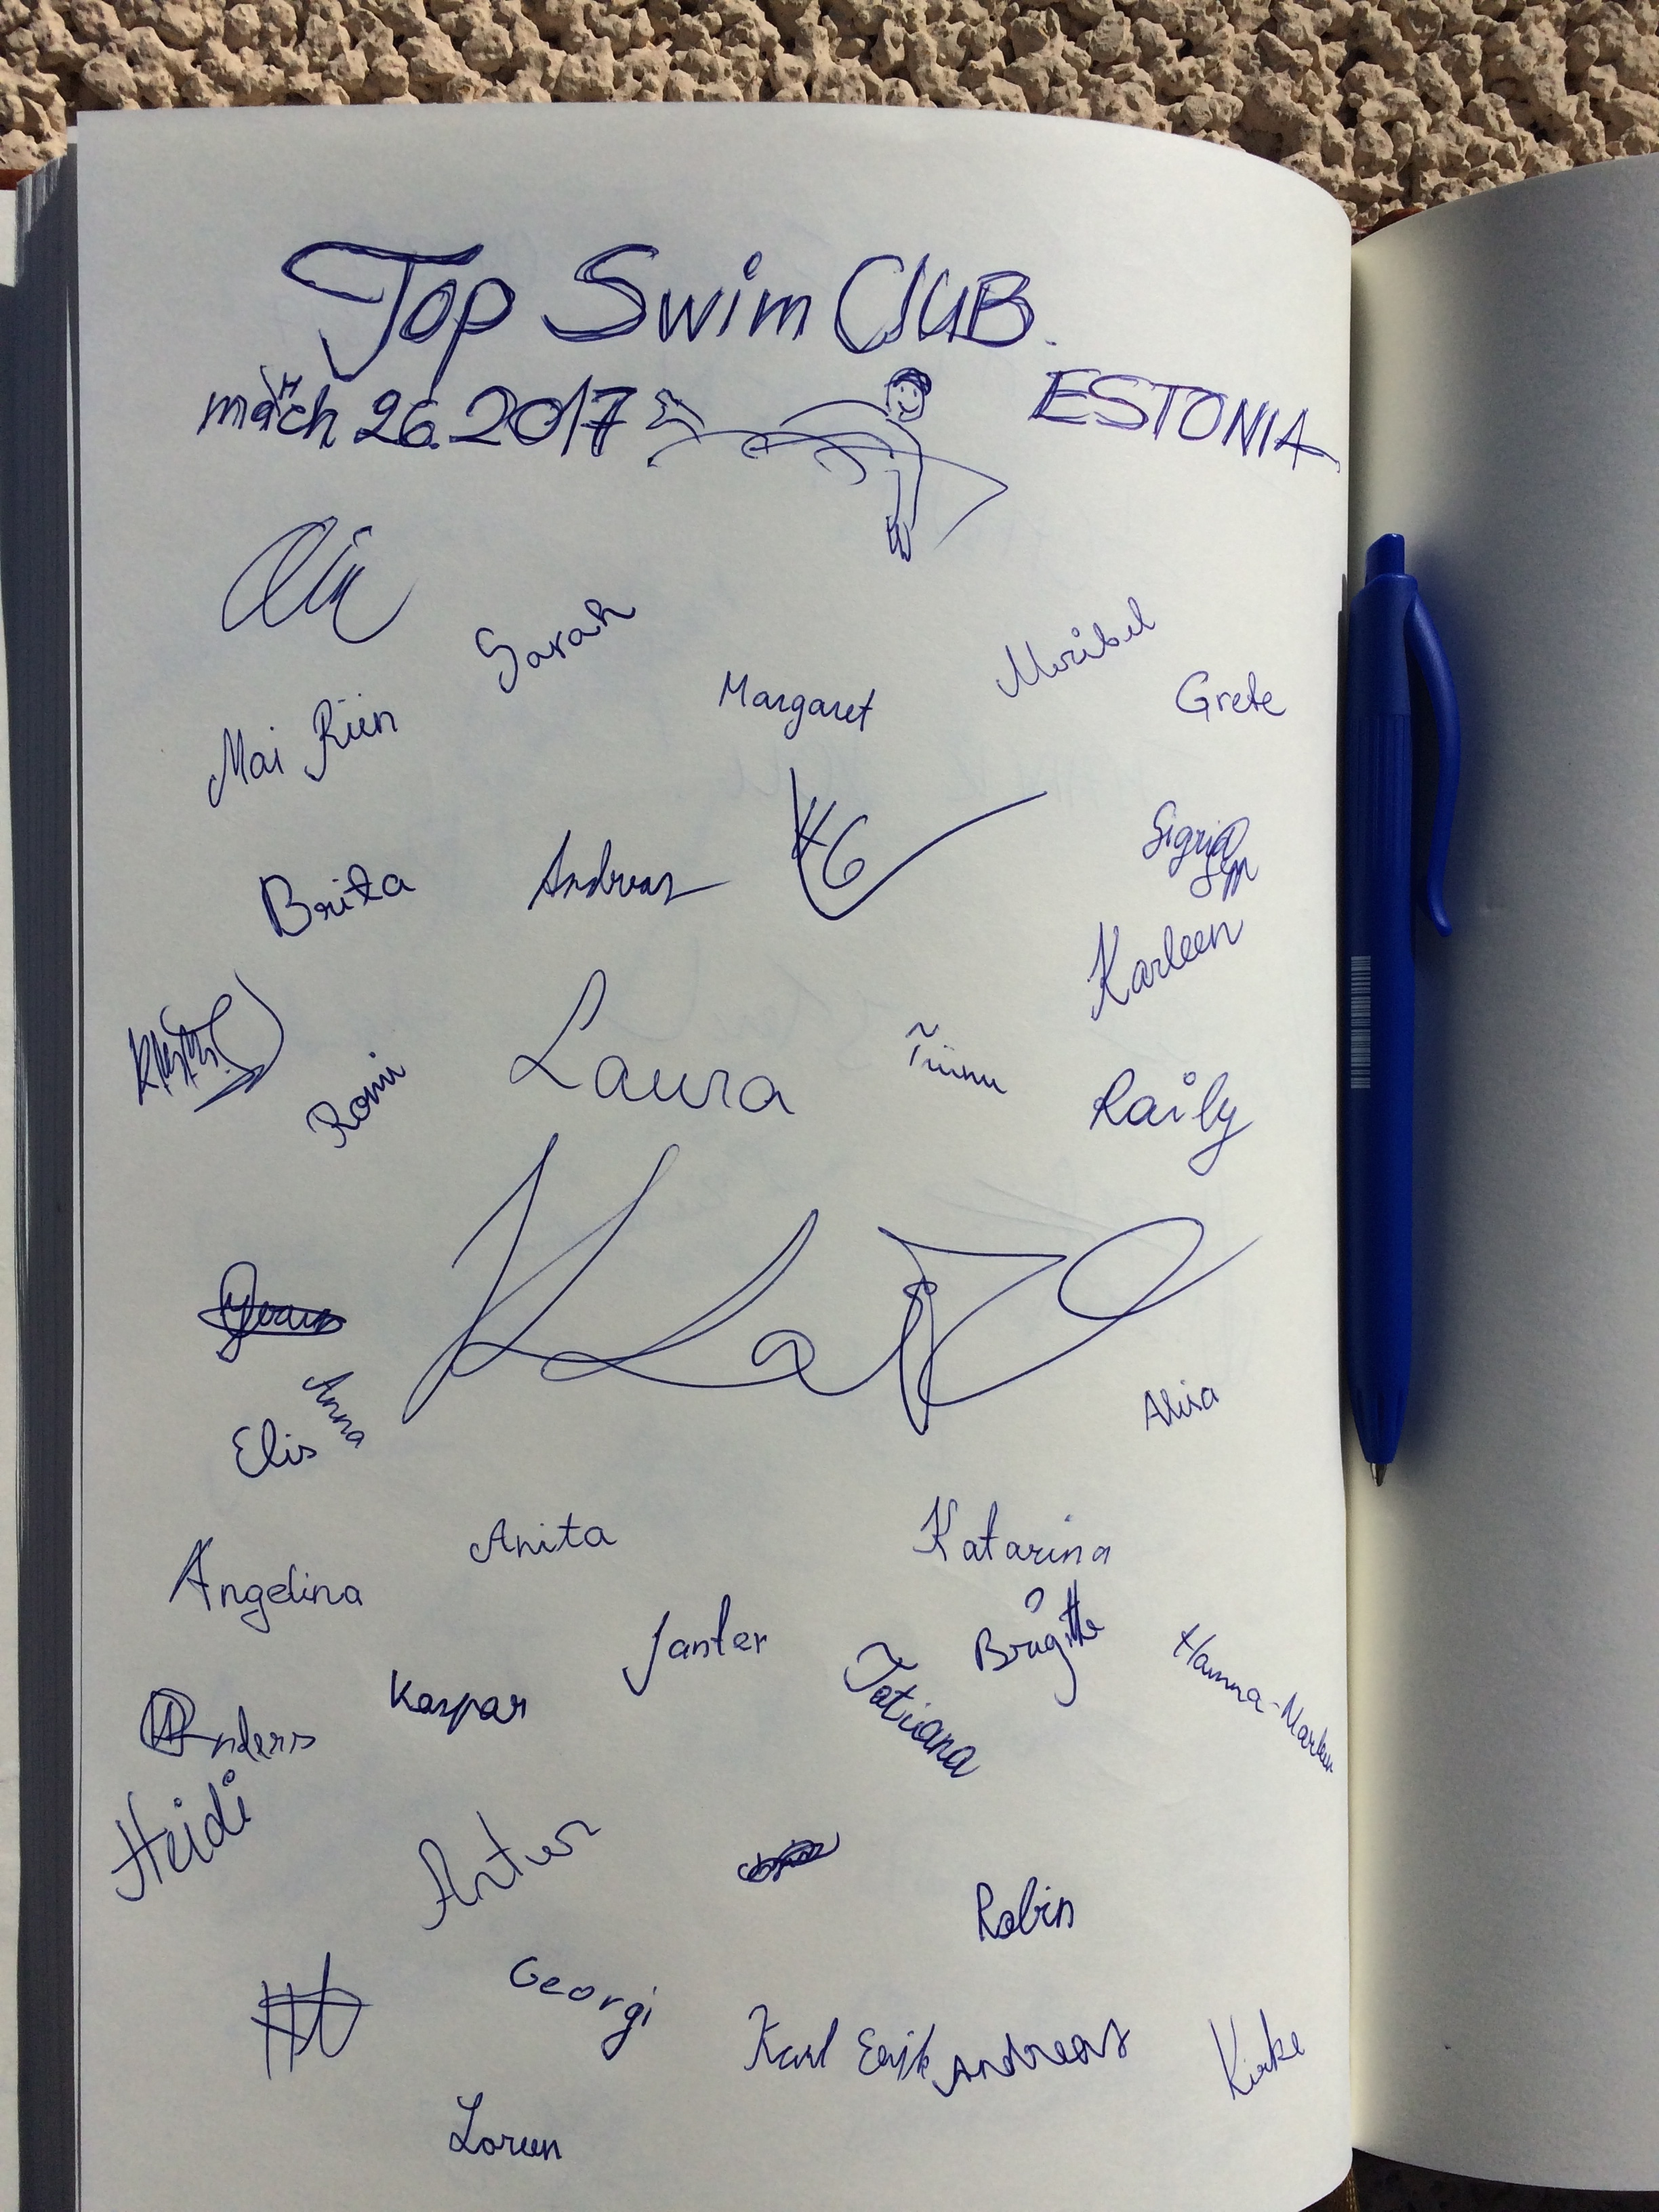 Top Swim CLUB.
märch 26.2017
ESTONIA
Sarah
Margaret
Meribel
Grete
Mai Riin
Brita
Andreas
Sigrid
Karleen
Laura
Romi
Tiinu
Raily
Anna
Elis
Alisa
Anita
Katarina
Angelina
Janter
Brigitte
Tatiana
Hanna-
Kaspar
Anders
Heidi
Artur
Robin
Georgi
Karl Erik
Andreas
Kirke
Loreen